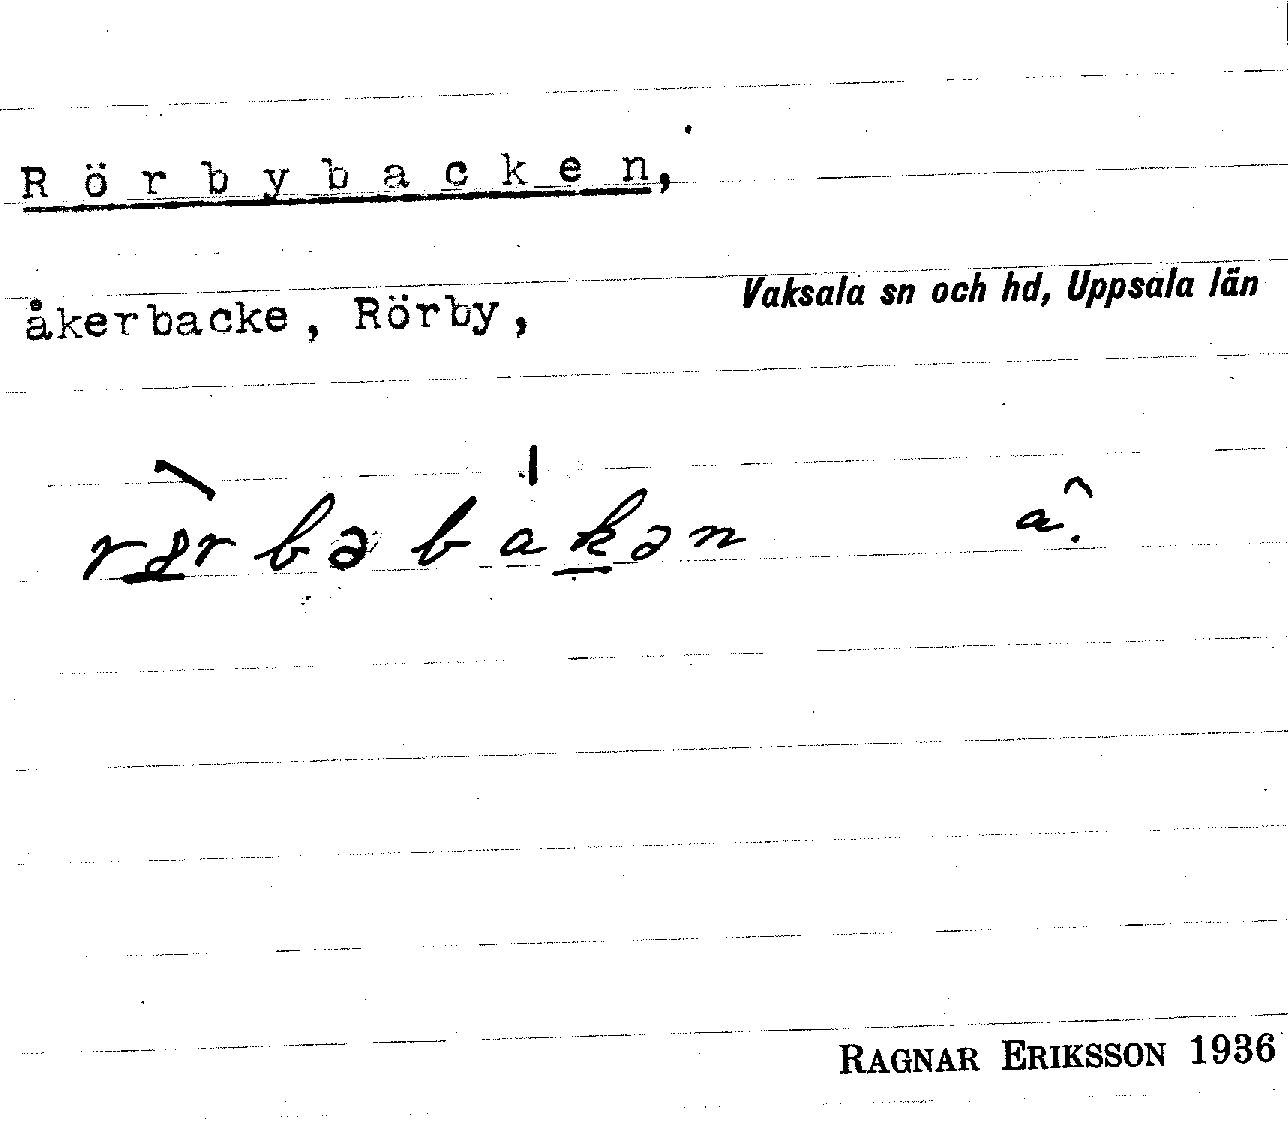 Rörbybacken,
Vaksala sn och hd, Uppsala län
åkerbacke, Rörby,
rørbəbakən a.
RAGNAR ERIKSSON 1936